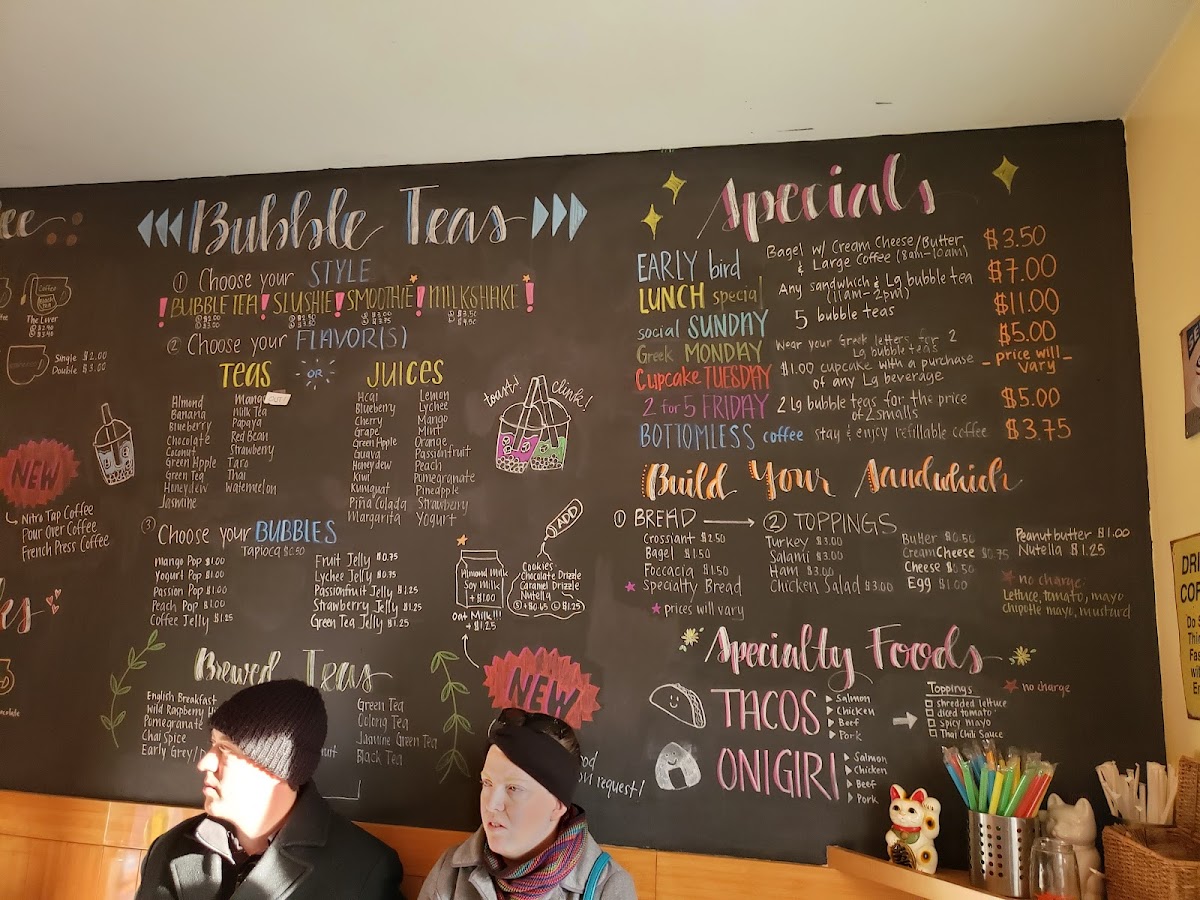 ee
Coffee
The Lover
Single $2.00
Double $3.00
NEW
Nitro Tap Coffee
Pour Over Coffee
French Press Coffee
ks
Bubble Teas
① Choose your STYLE
! BUBBLE TEA ! SLUSHIE ! SMOOTHIE ! MILKSHAKE !
② Choose your FLAVOR(S)
TEAS
OR
JUICES
Almond
Banana
Blueberry
Chocolate
Coconut
Green Apple
Green Tea
Honeydew
Jasmine
Mango
Milk Tea
Papaya
Red Bean
Strawberry
Taro
Thai
Watermelon
Acai
Blueberry
Cherry
Grape
Green Apple
Guava
Honeydew
Kiwi
Kumquat
Piña Colada
Margarita
Lemon
Lychee
Mango
Mint
Orange
Passionfruit
Peach
Pomegranate
Pineapple
Strawberry
Yogurt
toast!
clink!
③ Choose your BUBBLES
Tapioca $0.50
Mango Pop $1.00
Yogurt Pop $1.00
Passion Pop $1.00
Peach Pop $1.00
Coffee Jelly $1.25
Fruit Jelly $0.75
Lychee Jelly $0.75
Passionfruit Jelly $1.25
Strawberry Jelly $1.25
Green Tea Jelly $1.25
Almond Milk
Soy Milk
+$1.00
Oat Milk!!!
+$1.25
ADD
Cookies
Chocolate Drizzle
Caramel Drizzle
Nutella
Ⓢ+$0.65 Ⓛ$1.25
NEW
Brewed Teas
English Breakfast
Wild Raspberry
Pomegranate
Chai Spice
Early Grey/
Green Tea
Oolong Tea
Jasmine Green Tea
Black Tea
on request!
Specials
EARLY bird
Bagel w/ Cream Cheese/Butter
& Large Coffee (8am-10am)
$3.50
LUNCH special
Any sandwich & Lg bubble tea
(11am-2pm)
$7.00
social SUNDAY
5 bubble teas
$11.00
Greek MONDAY
Wear your Greek letters for 2
Lg bubble teas
$5.00
Cupcake TUESDAY
$1.00 cupcake with a purchase
of any Lg beverage
- price will -
vary
2 for 5 FRIDAY
2 Lg bubble teas for the price
of 2 smalls
$5.00
BOTTOMLESS coffee
stay & enjoy refillable coffee
$3.75
Build Your Sandwhich
① BREAD
② TOPPINGS
Crossiant $2.50
Bagel $1.50
Foccacia $1.50
Specialty Bread
prices will vary
Turkey $3.00
Salami $3.00
Ham $3.00
Chicken Salad $3.00
Butter $0.50
Cream Cheese $0.75
Cheese $0.50
Egg $1.00
Peanutbutter $1.00
Nutella $1.25
no charge:
Lettuce, tomato, mayo
chipotle mayo, mustard
Specialty Foods
TACOS
Salmon
Chicken
Beef
Pork
Toppings
shredded lettuce
diced tomato
spicy mayo
Thai Chili Sauce
no charge
ONIGIRI
Salmon
Chicken
Beef
Pork